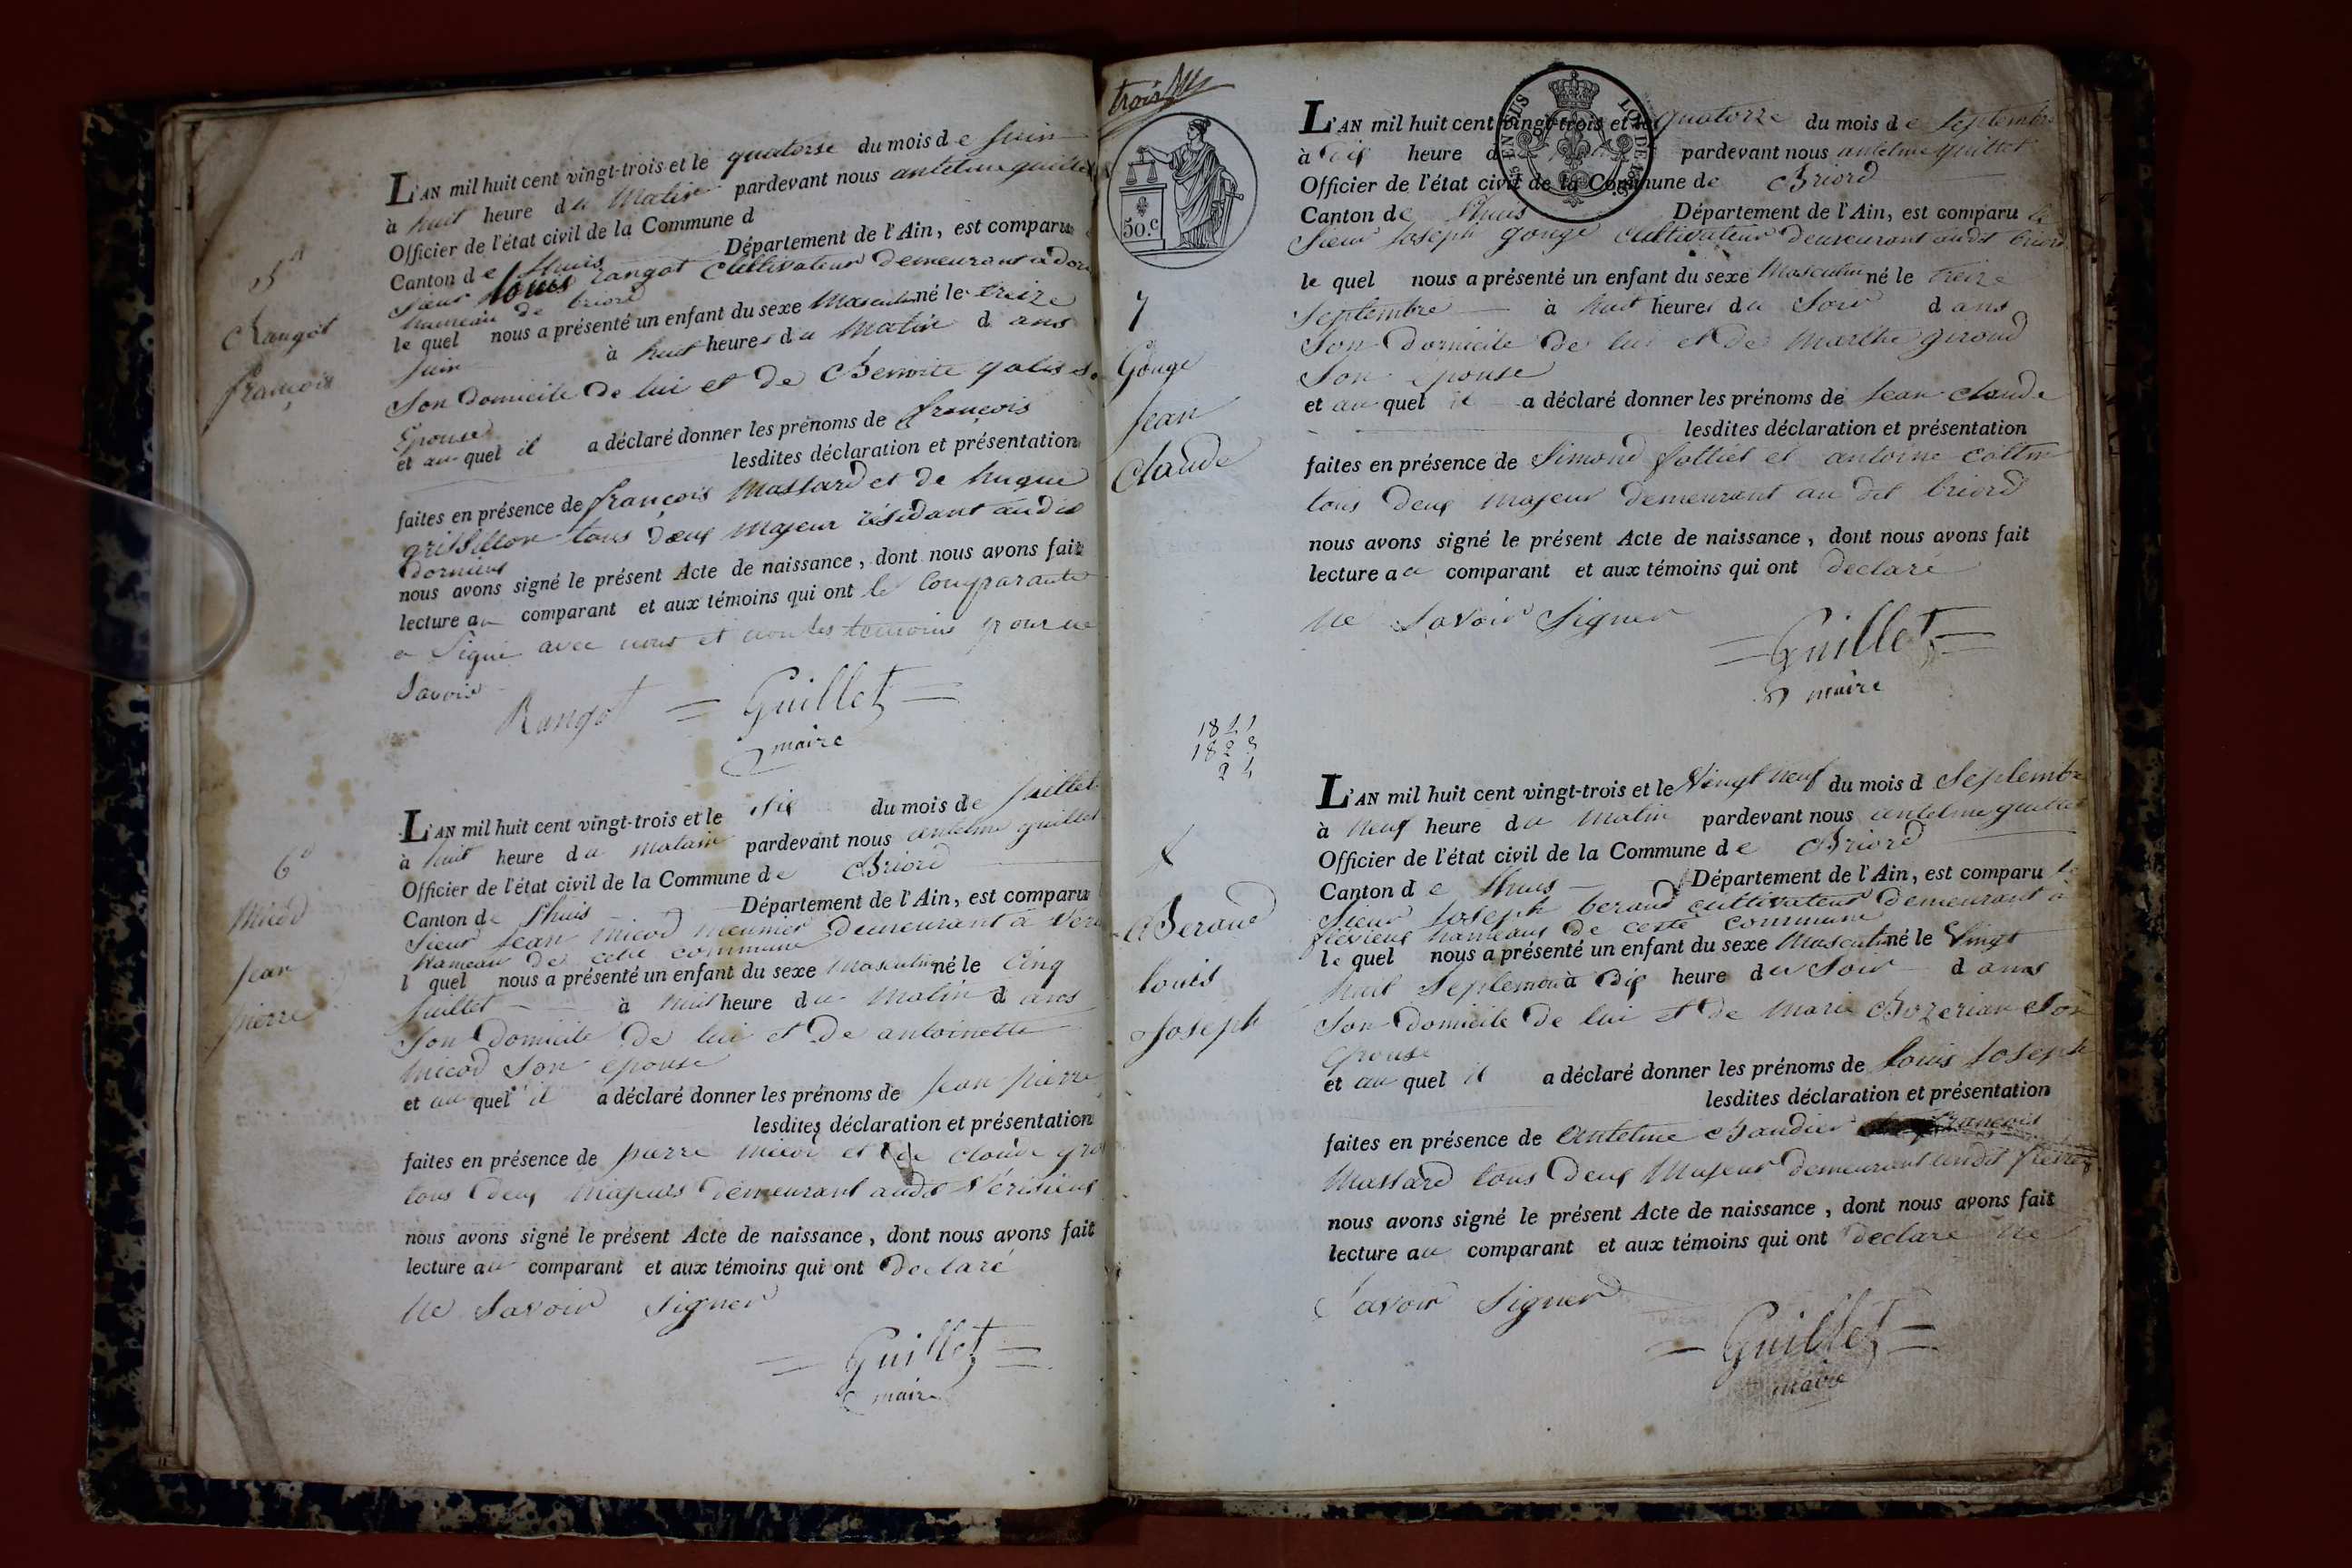 5
Rangot
françois
L'AN mil huit cent vingt-trois et le quatorse du mois de Juin
à huit heure du Matin pardevant nous antelme guillet
Officier de l'état civil de la Commune d
Canton de Lhuis Département de l'Ain, est comparu
Sieur louis rangot Cultivateur demeurant a
hameau de briord
le quel nous a présenté un enfant du sexe Masculin né le treize
Juin à huit heures du Matin d ans
Son domicile de lui et de Benoite
Epouse
et au quel il a déclaré donner les prénoms de françois
lesdites déclaration et présentation
faites en présence de françois Massard et de hugue
grissillon tous deux Majeur résidant audit
dornieux
nous avons signé le présent Acte de naissance, dont nous avons fait
lecture au comparant et aux témoins qui ont le Comparante
a Signé avec nous et non les temoins pour ne
Savoir
Rangot = Guillet =
maire
6
Micod
Jean
pierre
L'AN mil huit cent vingt-trois et le Six du mois de Juillet
à huit heure du matain pardevant nous antelme guillet
Officier de l'état civil de la Commune de Briord
Canton de Lhuis Département de l'Ain, est comparu
Sieur Jean micod meunier demeurant à
hameau de cette commune
l quel nous a présenté un enfant du sexe masculin né le Cinq
Juillet à huit heure du Matin d ans
Son domicile de lui et de antoinette
micod Son epouse
et au quel il a déclaré donner les prénoms de Jean pierre
lesdites déclaration et présentation
faites en présence de pierre micod et de claude
tous deux majeurs demeurant audit Vérisieux
nous avons signé le présent Acte de naissance, dont nous avons fait
lecture au comparant et aux témoins qui ont declaré
ne Savoir Signer
= Guillet =
maire
trois
50.C
EN SUS
LOI DE 1816
7
Gouge
Jean
Claude
L'AN mil huit cent vingt-trois et le quatorze du mois de Septembre
à dix heure d pardevant nous antelme guillet
Officier de l'état civil de la Commune de Briord
Canton de Lhuis Département de l'Ain, est comparu le
Sieur Joseph gouge Cultivateur demeurant audit briord
le quel nous a présenté un enfant du sexe Masculin né le treize
Septembre à huit heures du Soir d ans
Son domicile de lui et de Marthe giroud
Son epouse
et au quel il a déclaré donner les prénoms de Jean Claude
lesdites déclaration et présentation
faites en présence de Simond et antoine
tous deux majeur demeurant au dit briord
nous avons signé le présent Acte de naissance, dont nous avons fait
lecture au comparant et aux témoins qui ont declaré
ne Savoir Signer
= Guillet =
maire
1823
24
Beraud
louis
Joseph
L'AN mil huit cent vingt-trois et le Vingt neuf du mois d Septembre
à Neuf heure du Matin pardevant nous antelme guillet
Officier de l'état civil de la Commune de Briord
Canton de Lhuis Département de l'Ain, est comparu le
Sieur Joseph beraud cultivateur demeurant à
hameaux de cette commune
le quel nous a présenté un enfant du sexe Masculin né le Vingt
huit Septembre à Dix heure du Soir d ans
Son domicile de lui et de Marie Bozerian Son
epouse
et au quel il a déclaré donner les prénoms de louis Joseph
lesdites déclaration et présentation
faites en présence de Antelme Baudier françois
Massard tous deux Majeur demeurant audit
nous avons signé le présent Acte de naissance, dont nous avons fait
lecture au comparant et aux témoins qui ont declaré ne
Savoir Signer
= Guillet =
maire